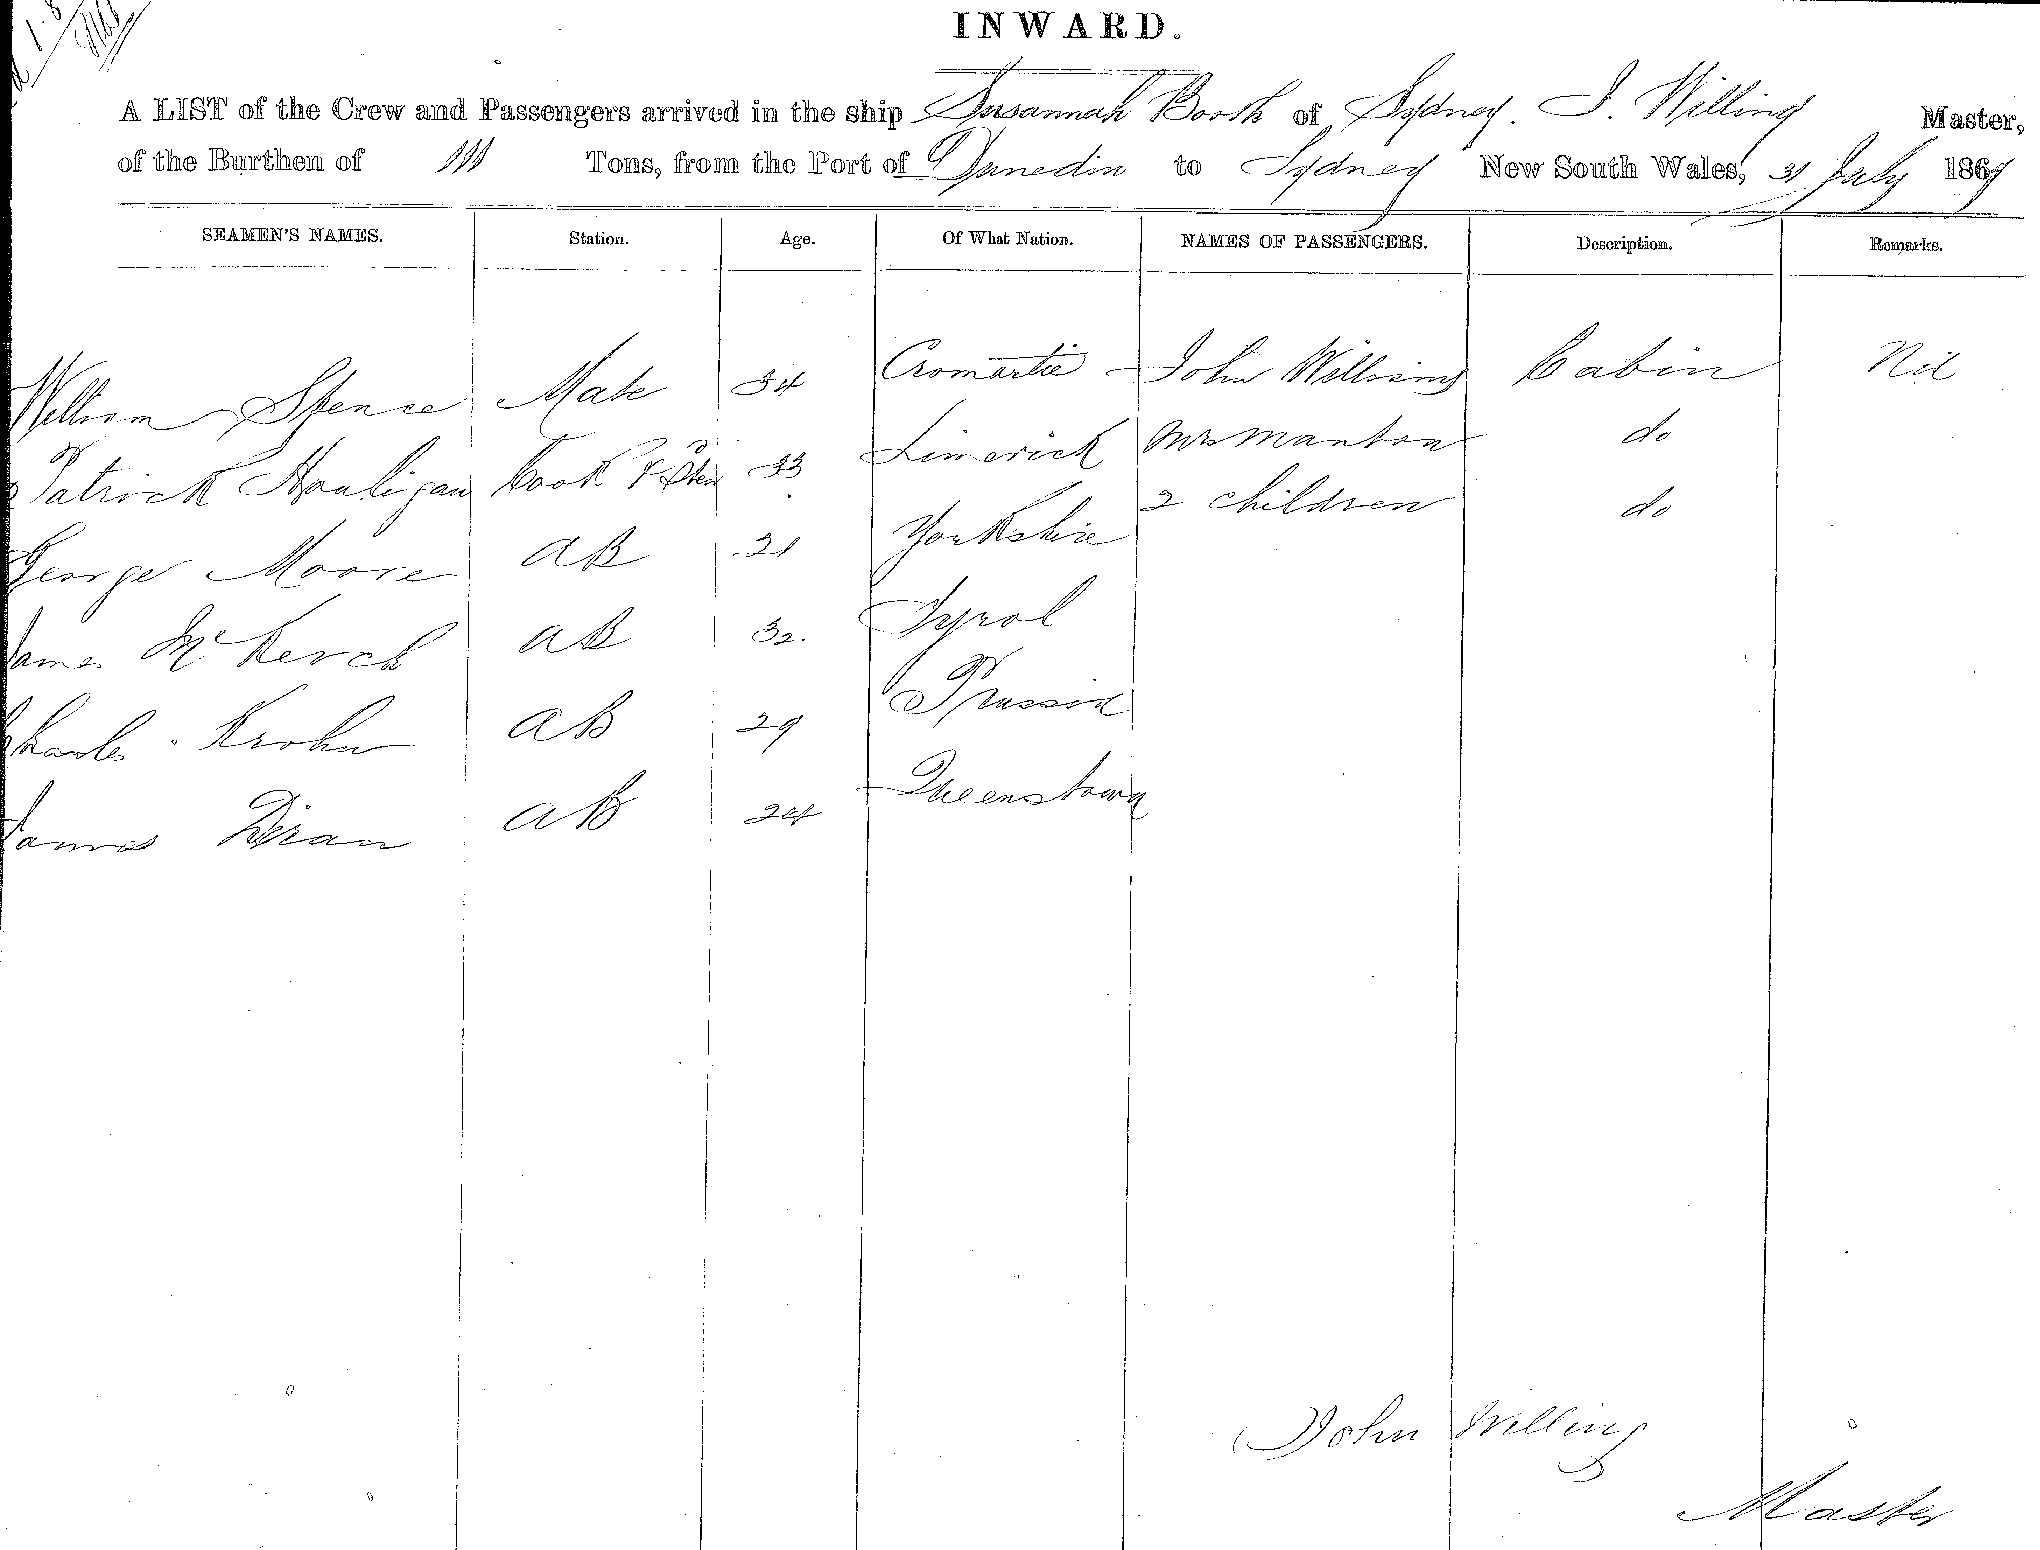 INWARD.
A LIST of the Crew and Passengers arrived in the ship Susannah Booth of Sydney. J. Willing Master,
of the Burthen of 111 Tons, from the Port of Dunedin to Sydney New South Wales, 31 July 1869
SEAMEN'S NAMES. Station. Age. Of What Nation. NAMES OF PASSENGERS. Description. Remarks.
William Spence Mate 34 Cromartie John Williams Cabin Nil
Patrick Houligan Cook & Stew 33 Limerick Mrs Manton do
George Moore AB 21 Yorkshire 2 children do
James McKerch AB 32 Tyrol
Charles Krohn AB 29 Prussia
James Diran AB 24 Queenstown
John Willing
Master